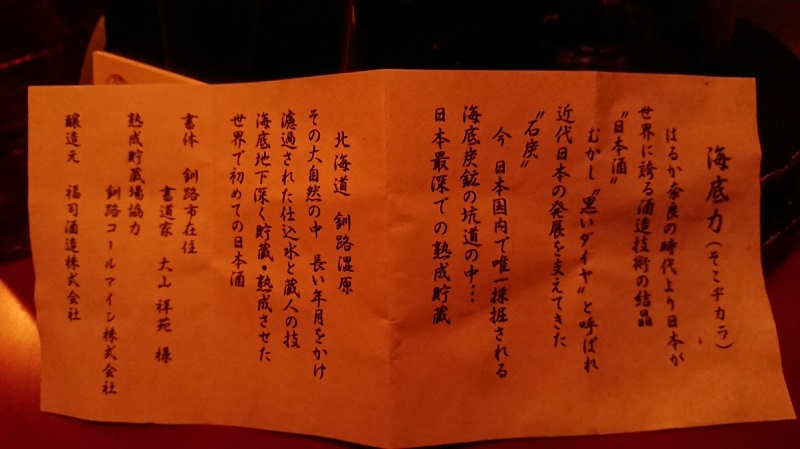 海底力（そこヂカラ）
はるか奈良の時代より日本が
世界に誇る酒造技術の結晶
〝日本酒〟
むかし〝黒いダイヤ〟と呼ばれ
近代日本の発展を支えてきた
〝石炭〟
今 日本国内で唯一採掘される
海底炭鉱の坑道の中…
日本最深での熟成貯蔵
北海道 釧路湿原
その大自然の中 長い年月をかけ
濾過された仕込水と蔵人の技
海底地下深く貯蔵・熟成させた
世界で初めての日本酒
書体 釧路市在住
書道家 大山 祥苑 様
熟成貯蔵場協力
釧路コールマイン株式会社
醸造元 福司酒造株式会社